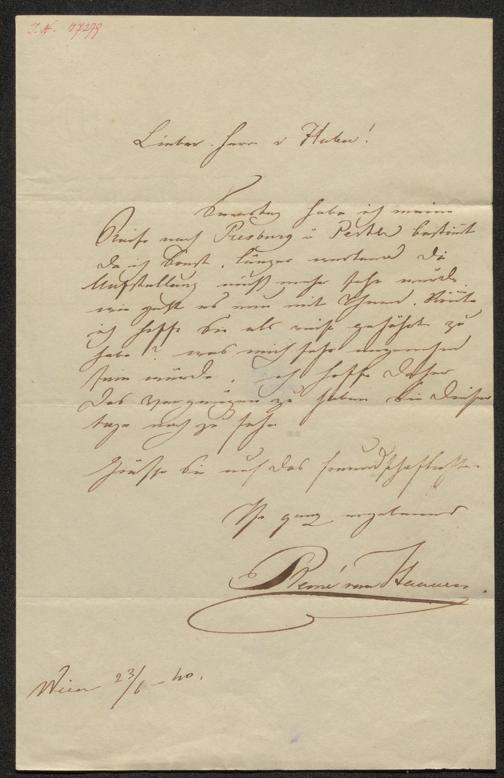 I.N. 47279
Lieber Herr v
habe ich meine
Reise nach Presburg u Pesth bestimt
da ich sonst länger
Aufstellung nicht mehr sehn würde
wie geht es nun mit Ihnen.
ich hoffe Sie als
habe? was mich sehr angenehm
sein würde, ich hoffe daher
das vergnügen zu haben Sie dieser
tage noch zu sehn
Grüsse Sie auf das freundschaftlichste
Ihr ganz ergebener
René van Haanen
Wien 23/6 - 40.